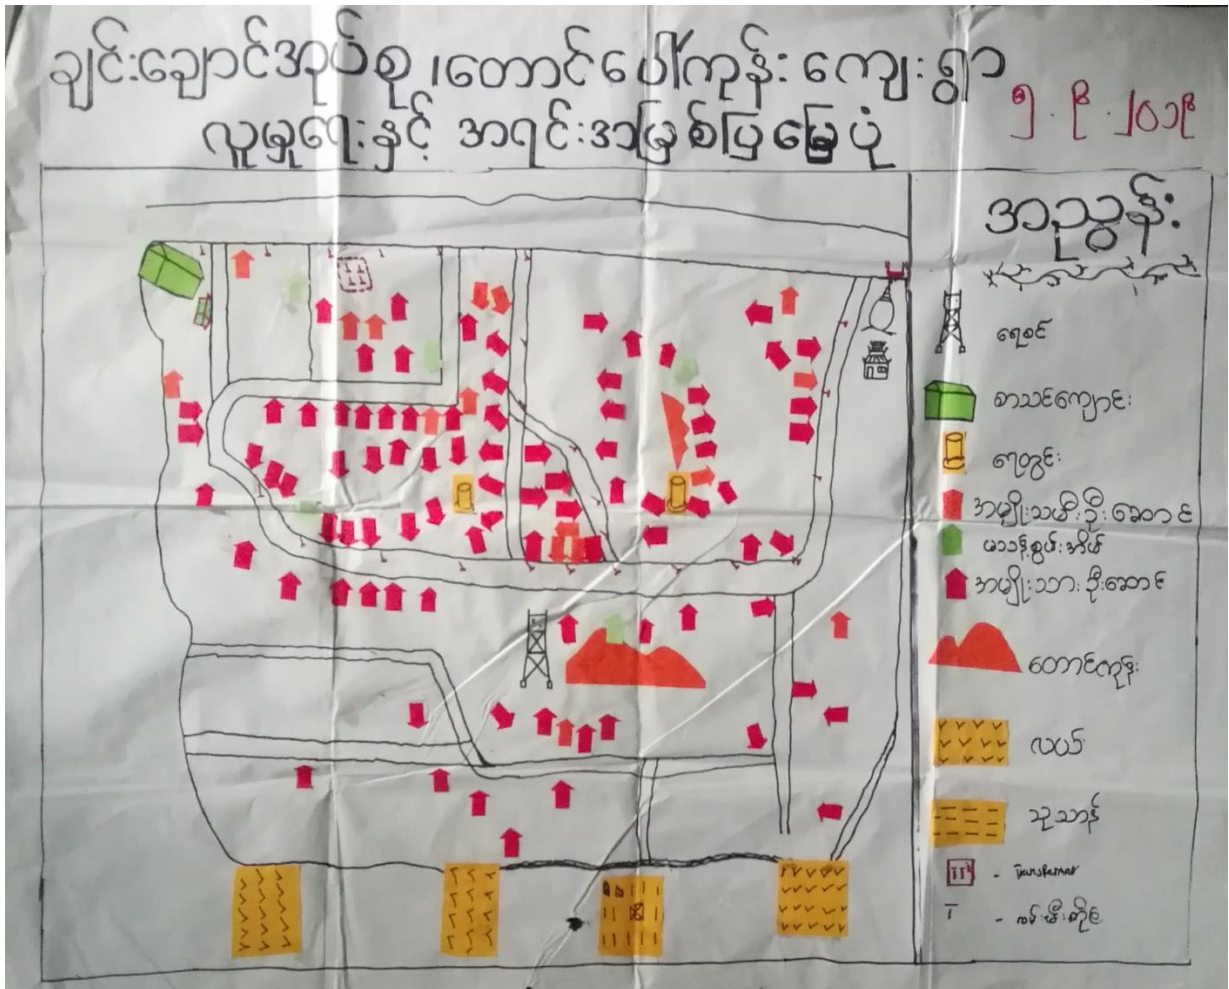 ချင်းချောင်အုပ်စု၊တောင်ပေါ်ကုန်းကျေးရွာ
လူမှုရေးနှင့် အရင်းအမြစ်ပြမြေပုံ
၅.၉.၂၀၁၉
အညွှန်း
ရေစင်
စာသင်ကျောင်း
ရေတွင်း
အမျိုးသမီးဦးဆောင်
မသန်စွမ်းအိမ်
အမျိုးသားဦးဆောင်
တောင်ကုန်း
လယ်
သုသာန်
- လမ်းမီးတိုင်